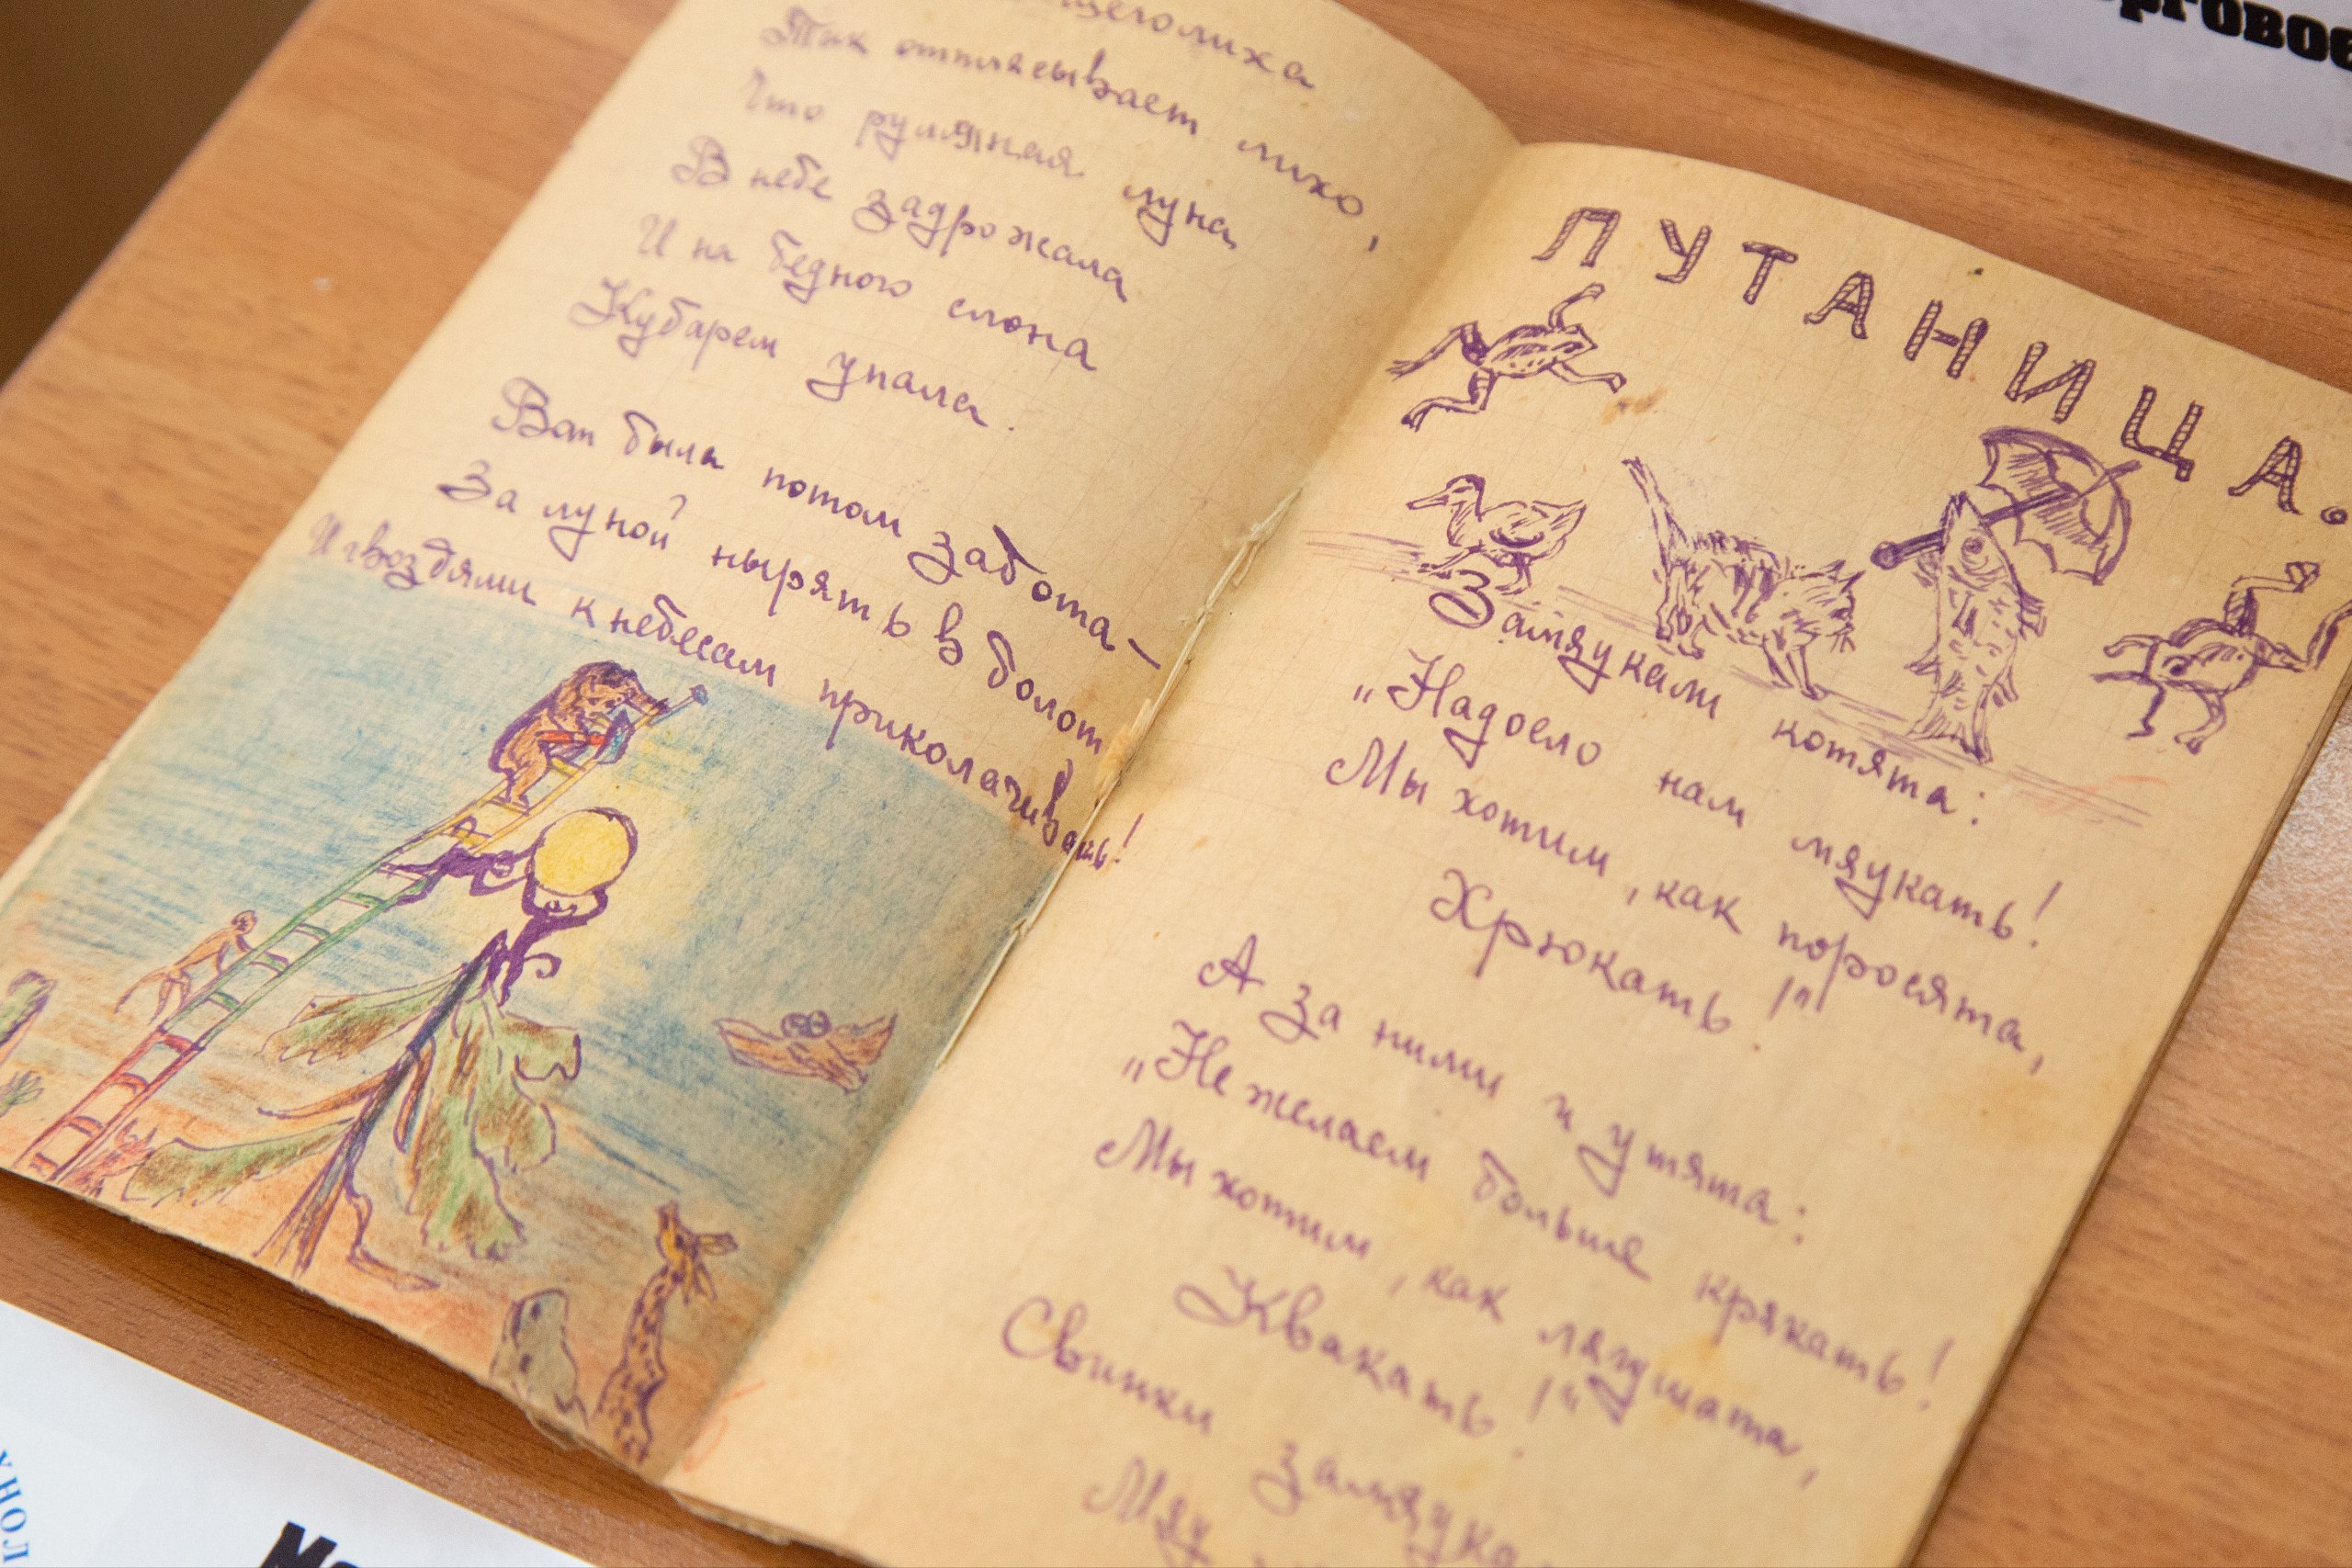 щеголиха
Так отплясывает лихо,
Что румяная луна
В небе задрожала
И на бедного слона
Кубарем упала.
Вот была потом забота -
За луной нырять в болот
И гвоздями к небесам приколачивать!
ПУТАНИЦА.
Замяукали котята:
„Надоело нам мяукать!
Мы хотим, как поросята,
Хрюкать!"
А за ними и утята:
„Не желаем больше крякать!
Мы хотим, как лягушата,
Квакать!"
Свинки замяука
Мяу